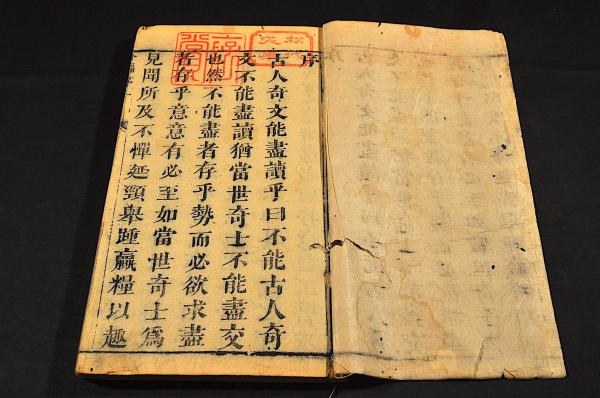 序
古人奇文能盡讀乎曰不能古人奇
文不能盡讀猶當世奇士不能盡交
也然不能盡者存乎勢而必欲求盡
者存乎意意有必至如當世奇士爲
見聞所及不憚延頸舉踵贏糧以趨